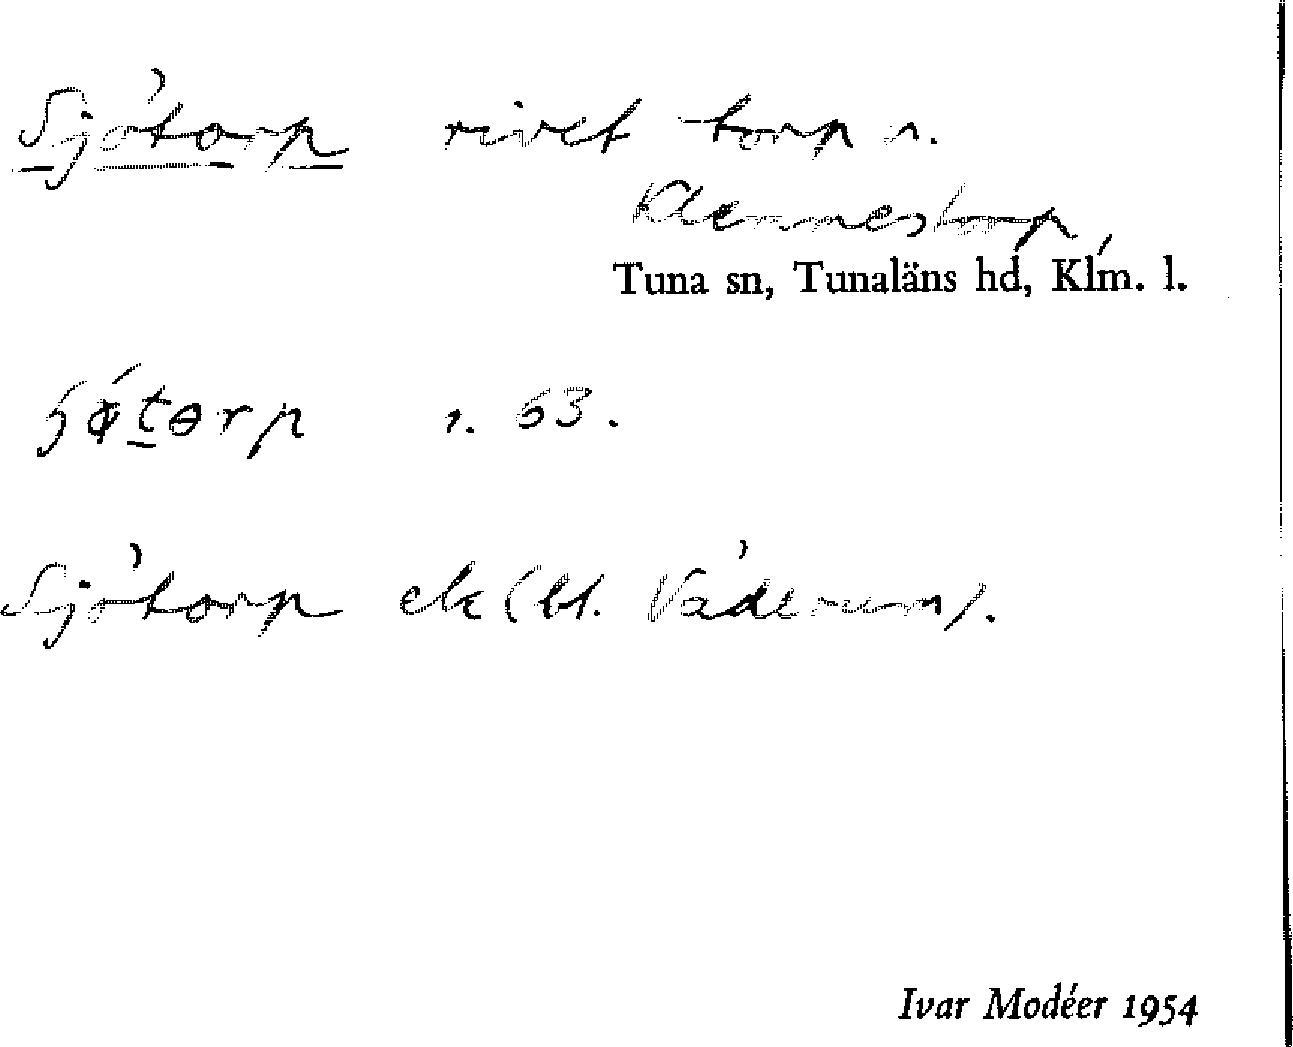 Sjötorp rivet torp s.
Klennestorp,
Tuna sn, Tunaläns hd, Klm. l.
s. 53.
Sjötorp ek (bl. Väderum).
Ivar Modéer 1954